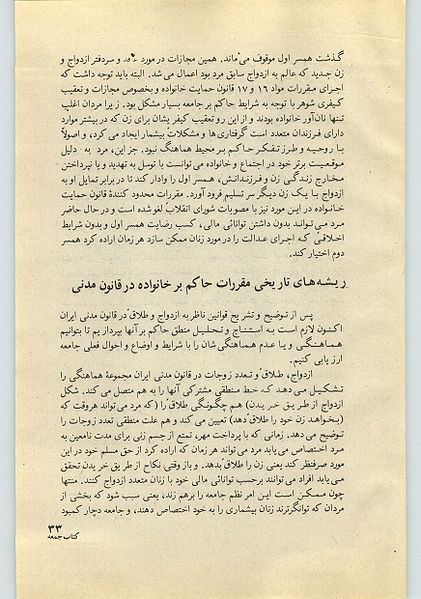 گذشت همسر اول موقوف می‌ماند. همین مجازات در مورد عاقد و سردفتر ازدواج و
زن جدید که عالم به ازدواج سابق مرد بود اعمال می‌شد. البته باید توجه داشت که
اجرای مقررات مواد ۱۶ و ۱۷ قانون حمایت خانواده و بخصوص مجازات و تعقیب
کیفری شوهر با توجه به شرایط حاکم بر جامعه بسیار مشکل بود. زیرا مردان اغلب
تنها نان‌آور خانواده بودند و از این رو تعقیب کیفریشان برای زن که در بیشتر موارد
دارای فرزندان متعدد است گرفتاری‌ها و مشکلات بیشمار ایجاد می کرد، و اصولاً
با روحیه و طرز تفکر حاکم بر محیط هماهنگ نبود. جز این، مرد به دلیل
موقعیت برتر خود در اجتماع و خانواده می‌توانست با توسل به تهدید و یا نپرداختن
مخارج زندگی زن و فرزندانش، همسر اول را وادار کند تا در برابر تمایل او به
ازدواج با یک زن دیگر سر تسلیم فرود آورد. مقررات محدود کنندهٔ قانون حمایت
خانواده در این مورد نیز با مصوبات شورای انقلاب لغو شده است و در حال حاضر
مرد می‌تواند بدون داشتن توانائی مالی، کسب رضایت همسر اول و بدون شرایط
اخلاقی که اجرای عدالت را در مورد زنان ممکن سازد هر زمان اراده کرد همسر
دوم اختیار کند.
ریشه‌های تاریخی مقررات حاکم بر خانواده در قانون مدنی
پس از توضیح و تشریح قوانین ناظر به ازدواج و طلاق در قانون مدنی ایران
اکنون لازم است به استنتاج و تحلیل منطق حاکم بر آنها بپردازیم تا بتوانیم
هماهنگی و یا عدم هماهنگی شان را با شرایط و اوضاع و احوال فعلی جامعه
ارزیابی کنیم.
ازدواج، طلاق و تعدد زوجات در قانون مدنی ایران مجموعهٔ هماهنگی را
تشکیل می‌دهد که خط منطقی مشترکی آنها را به هم متصل می کند. شکل
ازدواج (از طریق خریدن) هم چگونگی طلاق را (که مرد می‌تواند هروقت که
بخواهد زن خود را طلاق دهد) تعیین می کند و هم علت منطقی تعدد زوجات را
توضیح می دهد. زمانی که با پرداخت مهر، تمتع از جسم زنی برای مدت نامعین به
مرد اختصاص می یابد مرد می‌تواند هر زمان که اراده کرد از حق مسلم خود در این
مورد صرفنظر کند یعنی زن را طلاق بدهد. و باز وقتی نکاح از طریق خریدن تحقق
می یابد افراد می توانند برحسب توانائی مالی خود با زنان متعدد ازدواج کنند. منتها
چون ممکن است این امر نظم جامعه را برهم زند، یعنی سبب شود که بخشی از
مردان که توانگرترند زنان بیشماری را به خود اختصاص دهند، و جامعه دچار کمبود
۳۳
کتاب جمعه